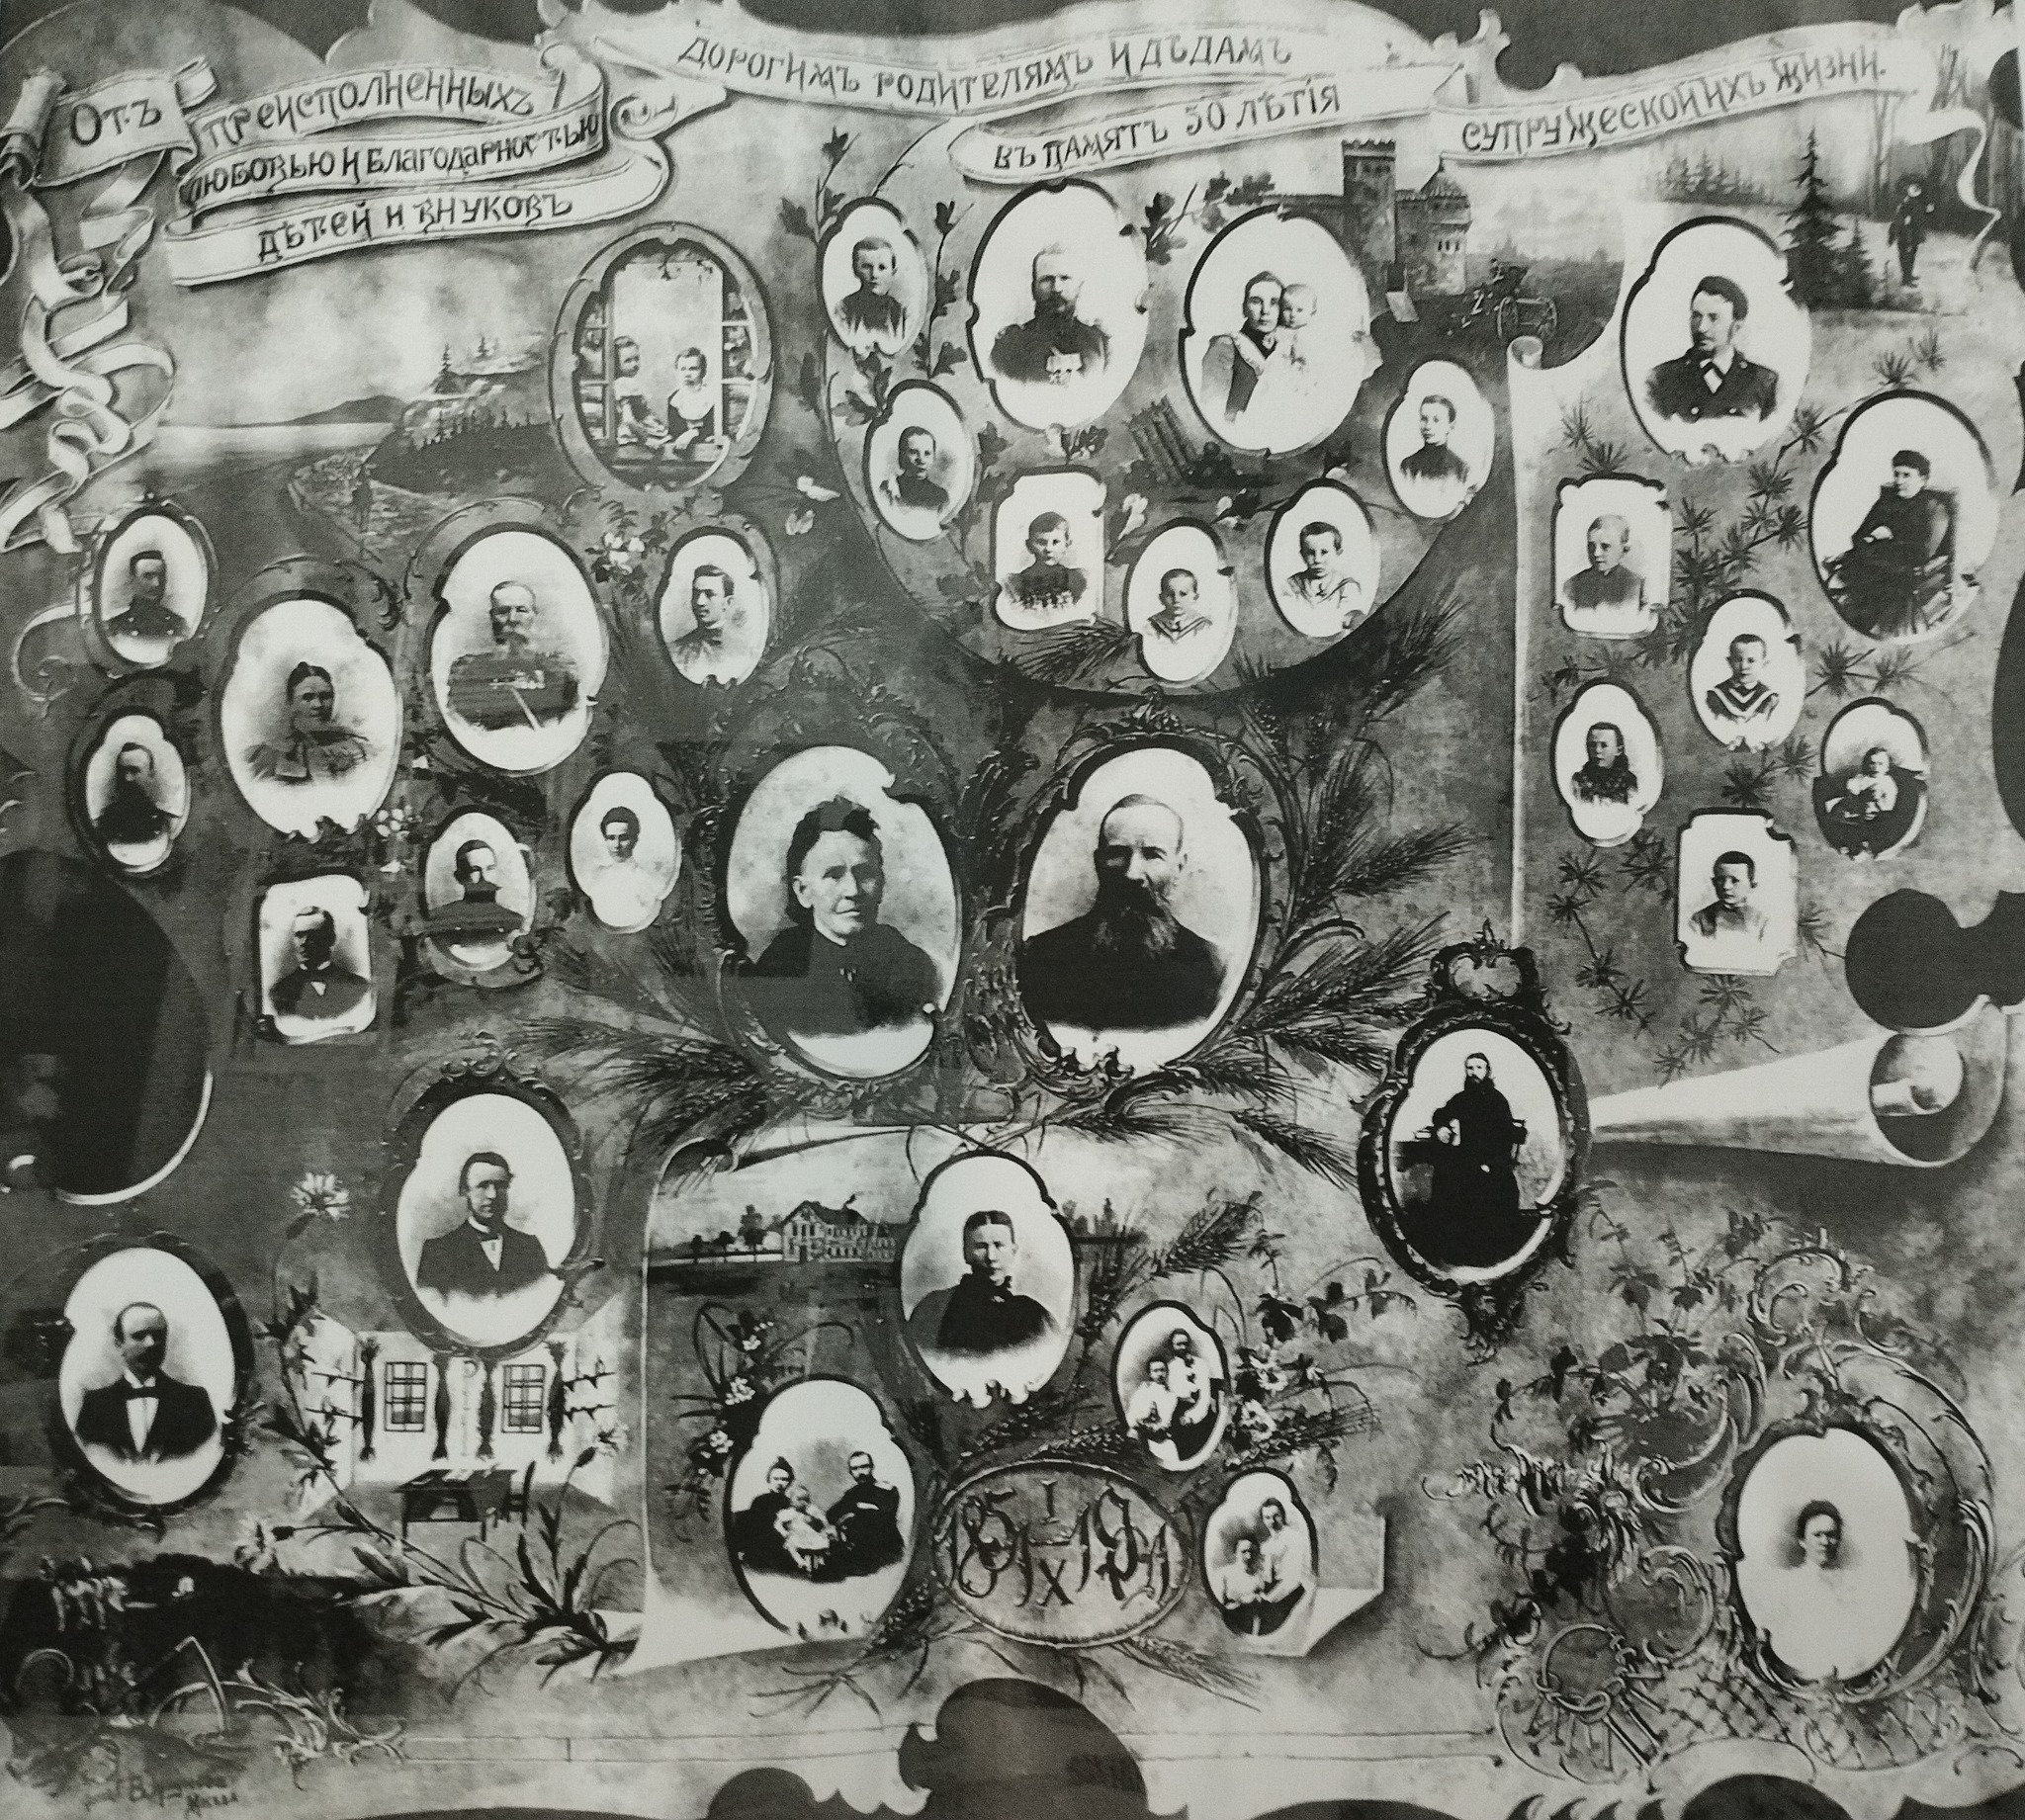 Отъ
преисполненныхъ
любовью и благодарностью
дѣтей и внуковъ
дорогимъ родителямъ и дѣдамъ
въ память 50 лѣтія
супружеской ихъ жизни.
I
1851-1901
IX